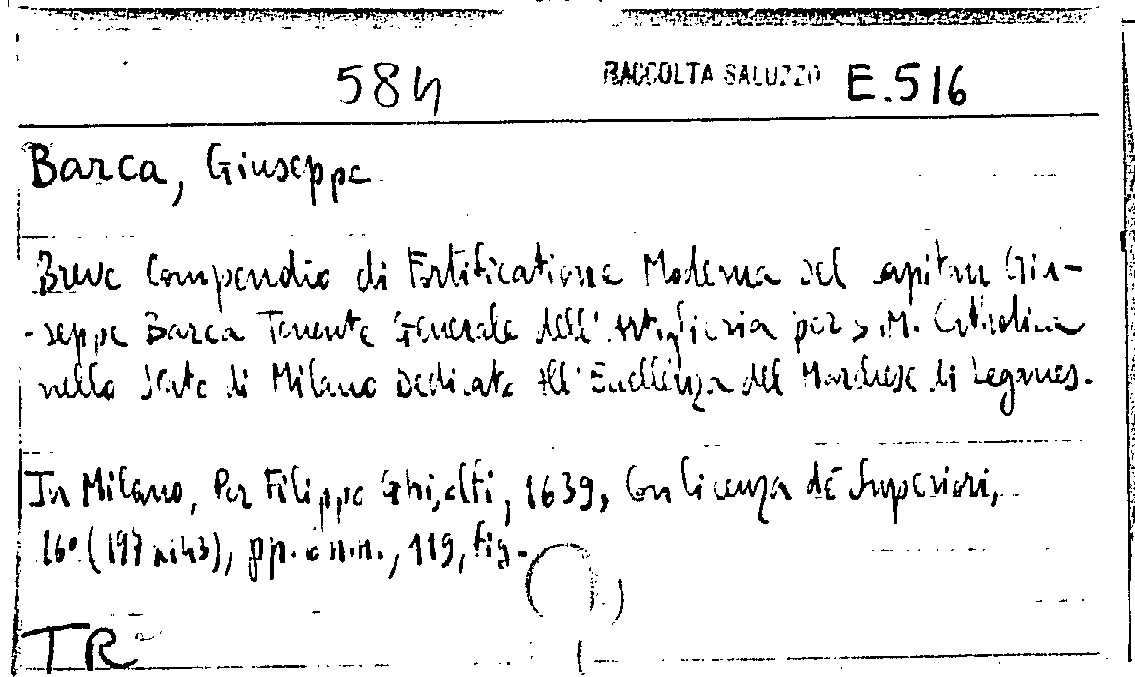 584 RACCOLTA SALUZZO E.516
Barca, Giuseppe
Breve Compendio di Fortificatione Moderna del apitan Giu-
-seppe Barca Tenente Generale dell'Artiglieria per S.M. Cattolica
nello Stato di Milano Dedicata All'Eccellenza del Marchese di Leganes.
In Milano, Per Filippo Ghisolfi, 1639, Con licenza de Superiori,
16° (197x143), pp. 6 n.n., 119, fig.
TR